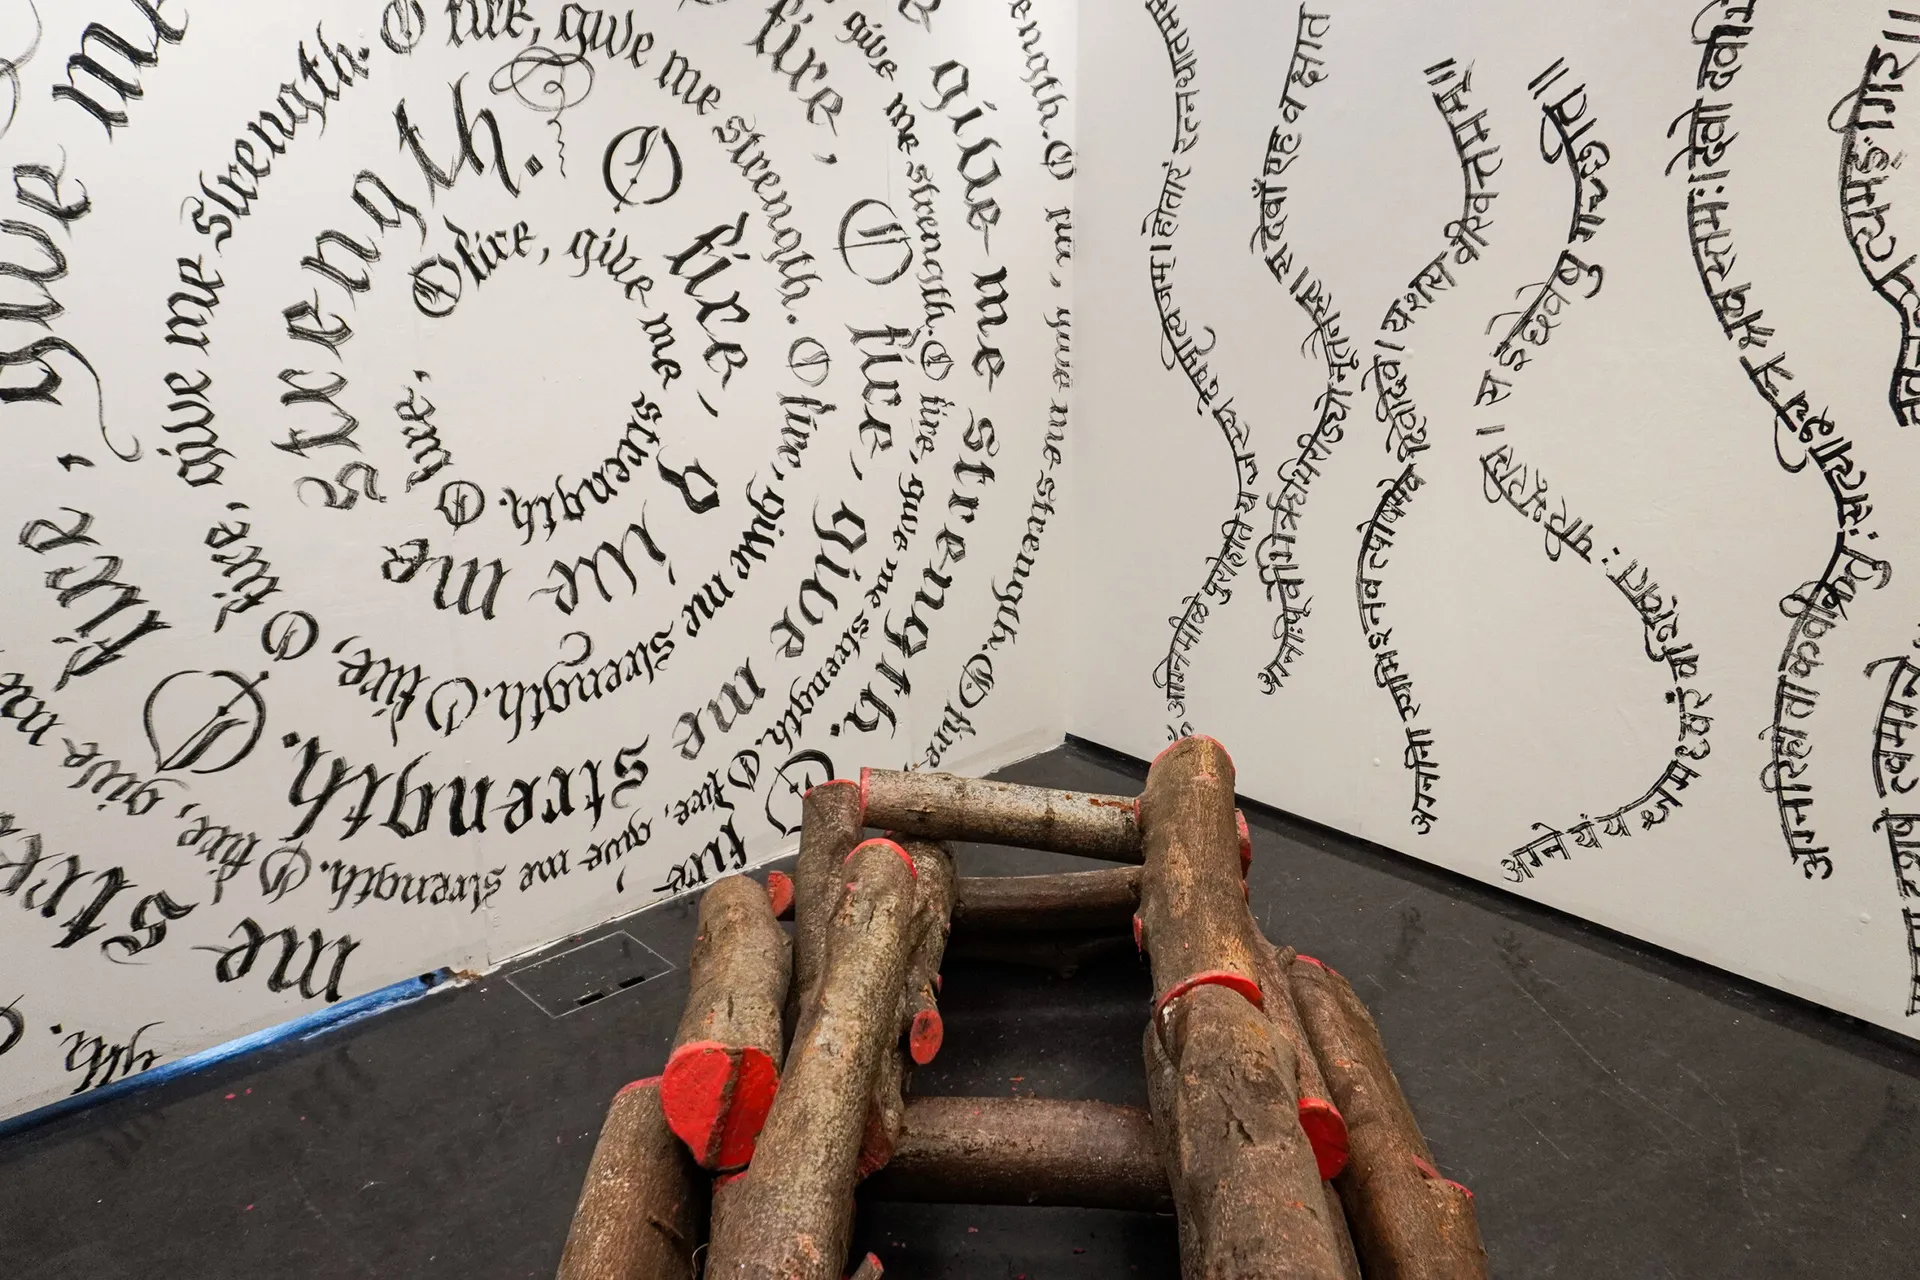 O fire, give me strength. O fire.
O fire, give me strength.
O fire, give me strength. O fire, give me strength. O fire, give me strength. O fire,
fire, O fire, give me strength. O fire, give me
give me strength. O fire, give me strength. O fire, give me strength. O fire, give me strength. O fire, give me
give me strength. O fire
me strength.
strength. O give me strength. O fire
अग्निमीळे पुरोहितं यज्ञस्य देवमृत्विजम्। होतारं रत्नधातमम
अग्निः पूर्वेभिर्ऋषिभिरीड्यो नूतनैरुत। स देवाँ एह वक्षति
अग्निना रयिमश्नवत् पोषमेव दिवेदिवे। यशसं वीरवत्तमम्॥
अग्ने यं यज्ञमध्वरं विश्वतः परिभूरसि। स इद्देवेषु गच्छति॥
अग्निर्होता कविक्रतुः सत्यश्चित्रश्रवस्तमः। देवो देवेभि